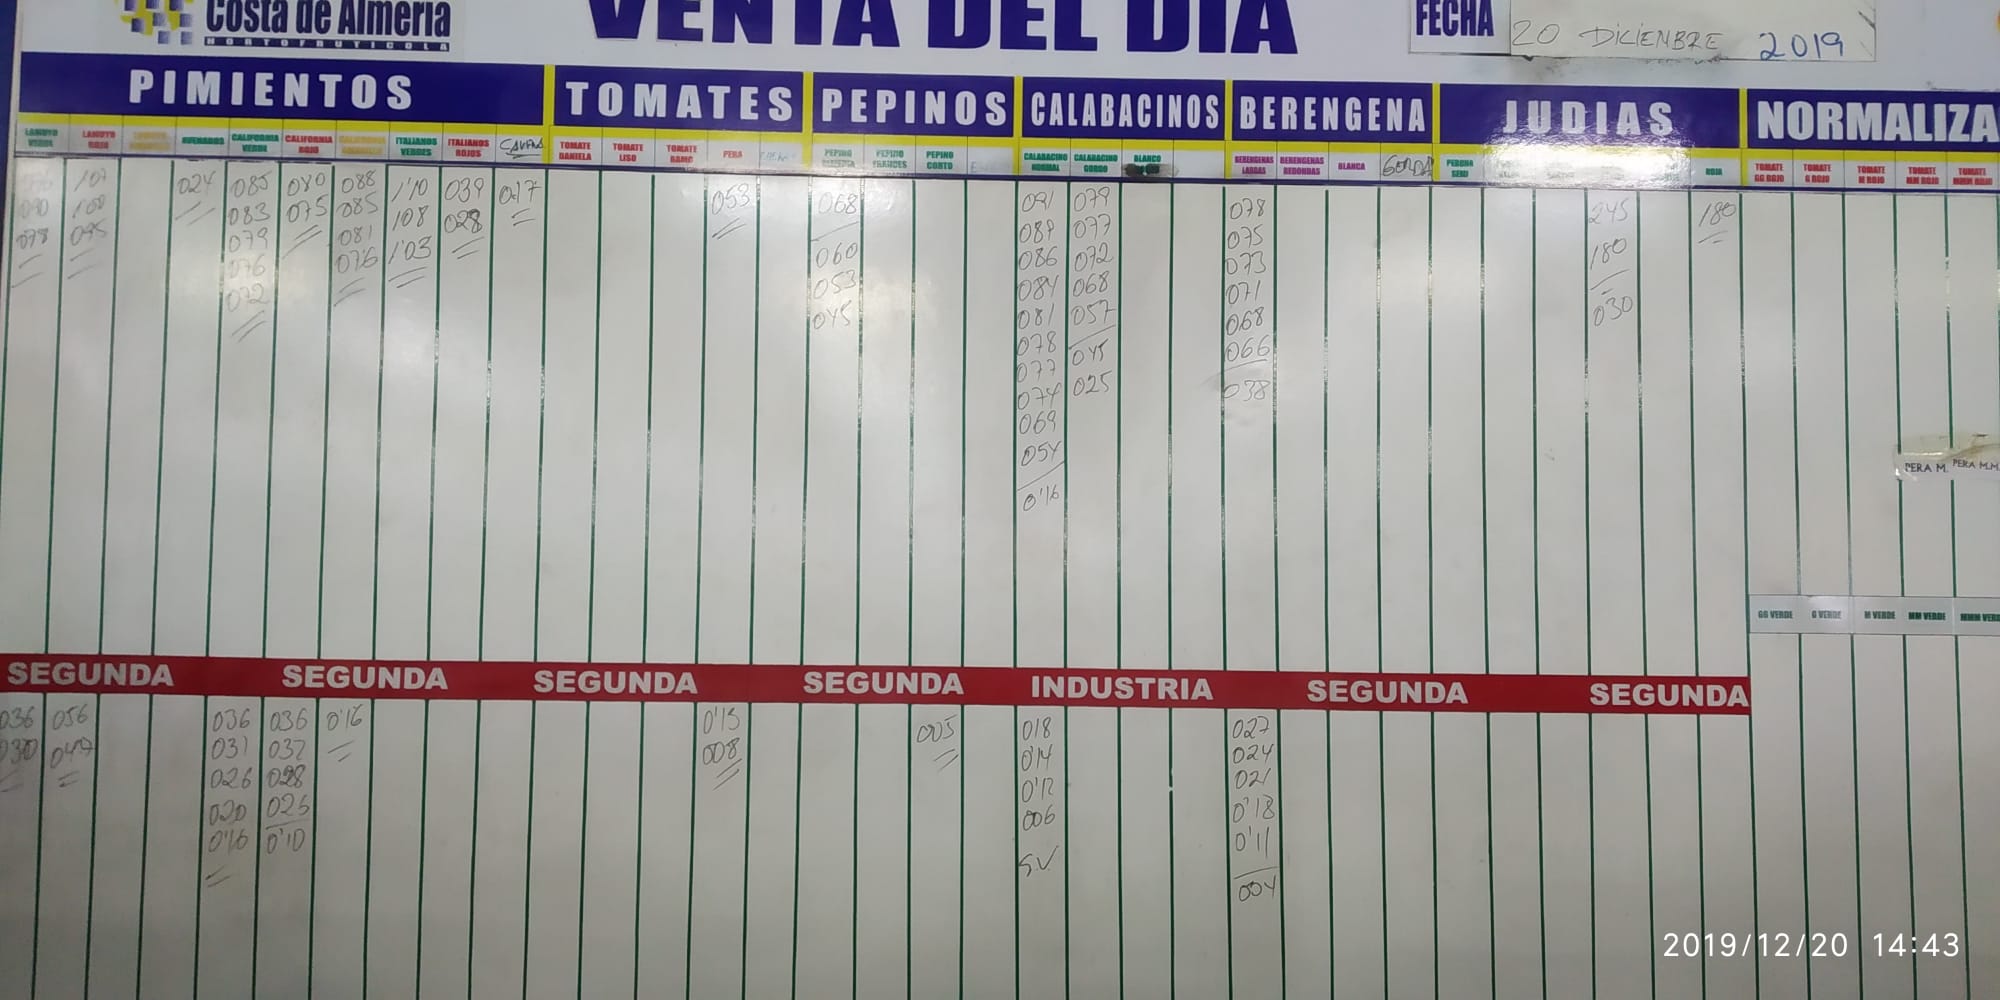 Costa de Almería
HORTOFRUTICOLA
VENTA DEL DIA
FECHA
20 DICIENBRE 2019
PIMIENTOS
TOMATES
PEPINOS
CALABACINOS
BERENGENA
JUDIAS
NORMALIZA
LAMUYO VERDE
LAMUYO ROJO
CALIFORNIA VERDE
CALIFORNIA ROJO
ITALIANOS VERDES
ITALIANOS ROJOS
TOMATE DANIELA
TOMATE LISO
TOMATE RAMO
PERA
PEPINO FRANCES
PEPINO CORTO
CALABACINO NORMAL
CALABACINO GORDO
BLANCO
BERENGENAS LARGAS
BERENGENAS REDONDAS
BLANCA
GORDA
ROJA
TOMATE GG ROJO
TOMATE G ROJO
TOMATE M ROJO
TOMATE MM ROJO
TOMATE MMM ROJO
078
107
100
095
024
085
083
079
076
072
080
075
088
085
081
076
1'10
108
1'03
039
028
017
053
068
060
053
045
091
087
086
084
081
078
077
074
069
054
0'16
079
077
072
068
057
045
025
078
075
073
071
068
066
038
245
180
030
180
PERA M.
PERA M.M.
GG VERDE
G VERDE
M VERDE
MM VERDE
MMM VERD
SEGUNDA
SEGUNDA
SEGUNDA
SEGUNDA
INDUSTRIA
SEGUNDA
SEGUNDA
036
030
056
047
036
031
026
020
0'16
036
032
028
026
0'10
0'16
0'15
008
005
018
0'14
0'12
006
S.V.
027
024
021
0'18
0'11
004
2019/12/20 14:43